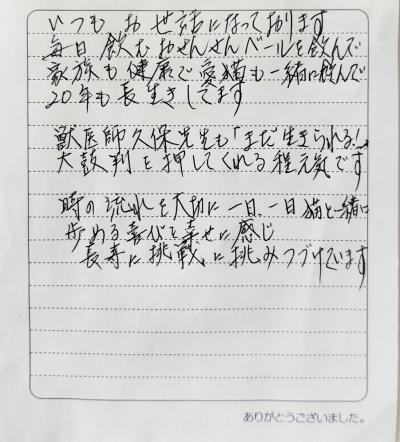 いつも お世話になって居ります
毎日 飲むおせんせんベールを飲んで
家族も健康で愛猫も一緒に飲んで
20年も長生きしてます
獣医師久保先生も「まだ生きられる!」
太鼓判を押してくれる程元気です
時の流れを大切に一日、一日 猫と一緒に
歩める喜びを幸せに感じ
長寿に挑戦に挑みつづけています
ありがとうございました。